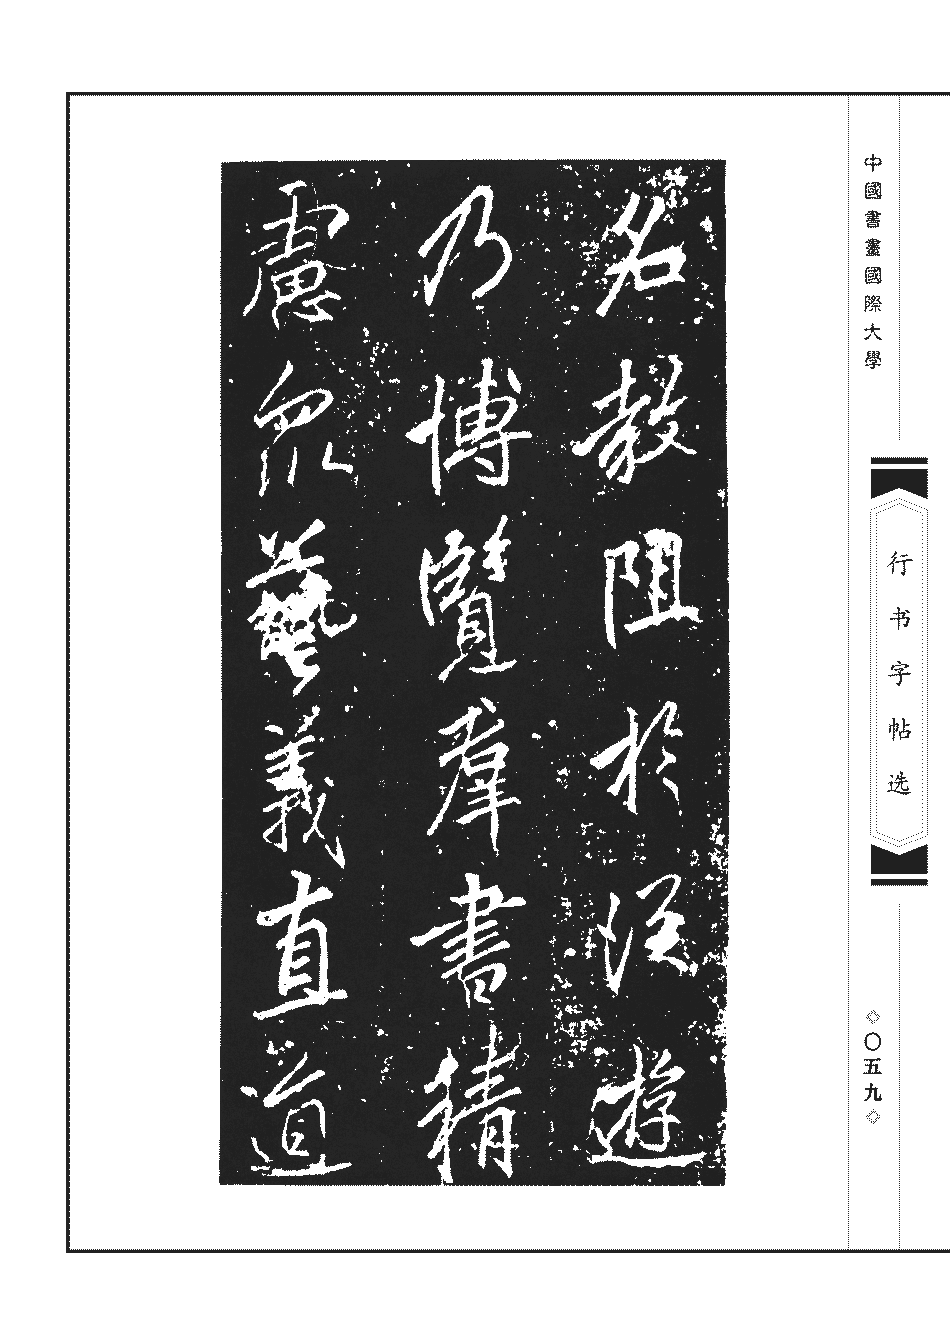 中國書畫國際大學
行书字帖选
〇五九
名教阻於從遊
乃博覽羣書精
慮眾藝義直道